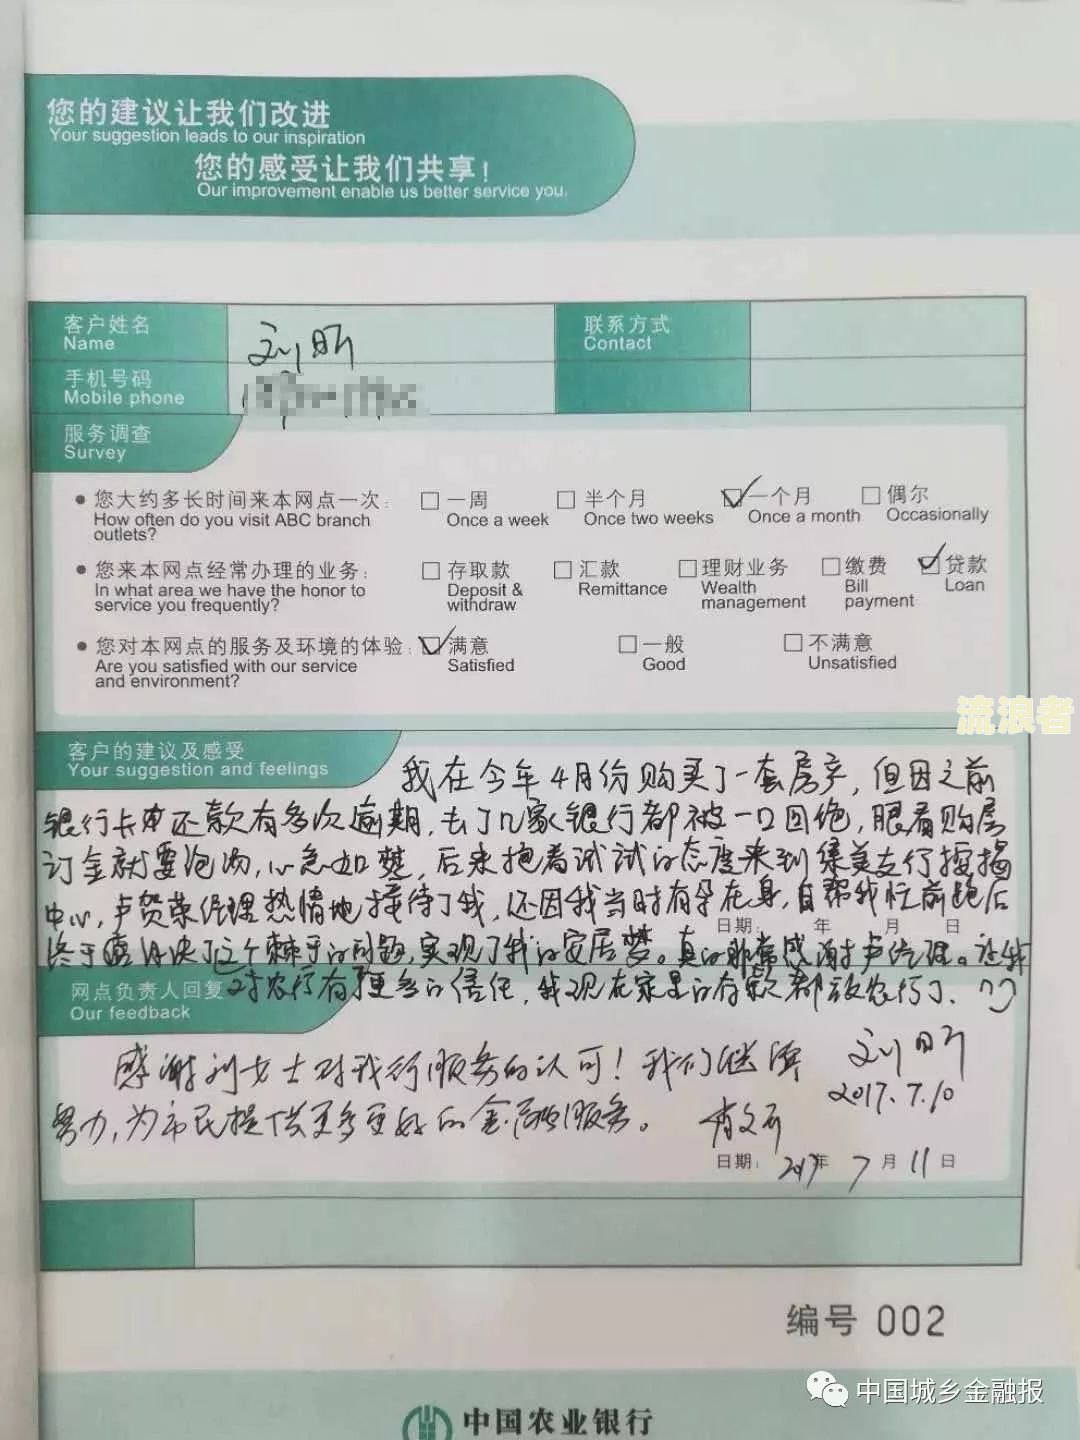 您的建议让我们改进
Your suggestion leads to our inspiration
您的感受让我们共享!
Our improvement enable us better service you.
客户姓名
Name
刘昕
联系方式
Contact
手机号码
Mobile phone
服务调查
Survey
● 您大约多长时间来本网点一次: □ 一周 □ 半个月 ☑ 一个月 □ 偶尔
How often do you visit ABC branch Once a week Once two weeks Once a month Occasionally
outlets?
● 您来本网点经常办理的业务: □ 存取款 □ 汇款 □ 理财业务 □ 缴费 ☑ 贷款
In what area we have the honor to Deposit & Remittance Wealth Bill Loan
service you frequently? withdraw management payment
● 您对本网点的服务及环境的体验: ☑ 满意 □ 一般 □ 不满意
Are you satisfied with our service Satisfied Good Unsatisfied
and environment?
流浪者
客户的建议及感受
Your suggestion and feelings
我在今年4月份购买了一套房产,但因之前
银行卡 还款有多次逾期,去了几家银行都被一口回绝,眼看购房
订金就要泡汤,心急如焚,后来抱着试试的态度来到集美支行按揭
中心,卢贺荣经理热情地接待了我,还因我当时有孕在身,自帮我忙前跑后
日期: 年 月 日
终于 解决了这个棘手的问题,实现了我的安居梦。真的非常感谢卢经理。让我
对农行有了更多的信任,我现在家里的存款都放农行了、
网点负责人回复
Our feedback
刘昕
2017.7.10
感谢刘女士对我行服务的认可!我们继续
努力,为市民提供更多更好的金融服务。
日期: 2017年 7 月 11 日
编号 002
中国城乡金融报
中国农业银行